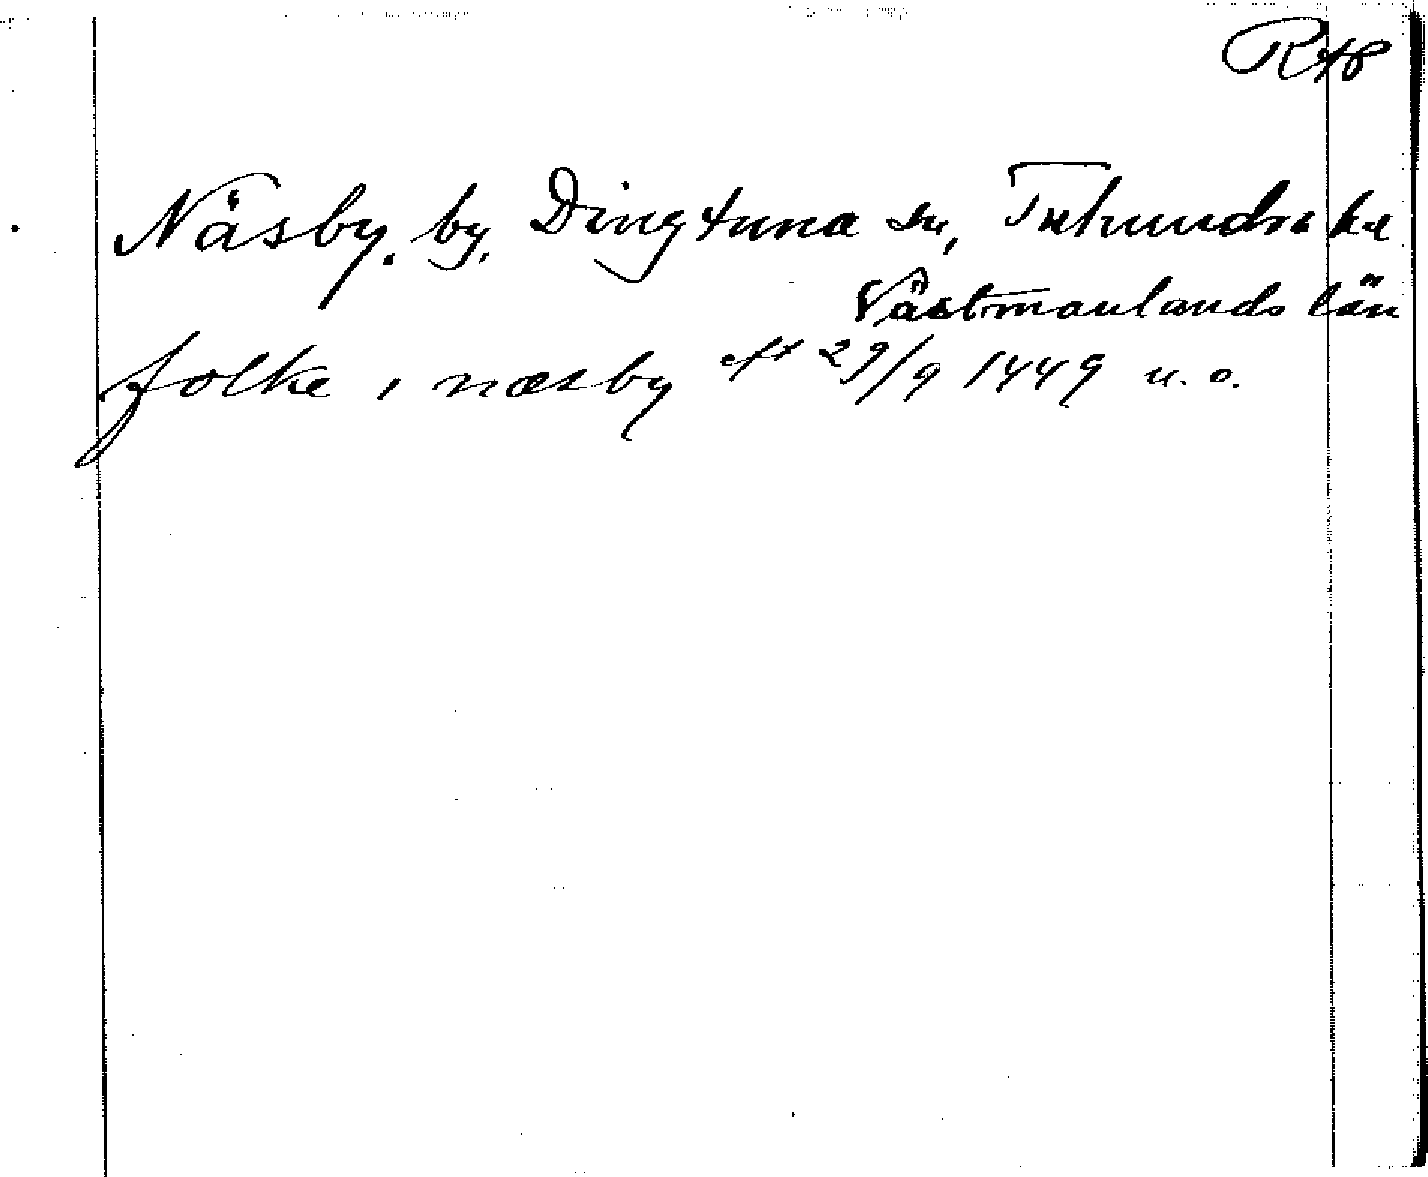 RAp
Näsby, by, Dingtuna sn, Tuhundra hd
Västmanlands län
folke i næsby eft 29/9 1449 u. o.